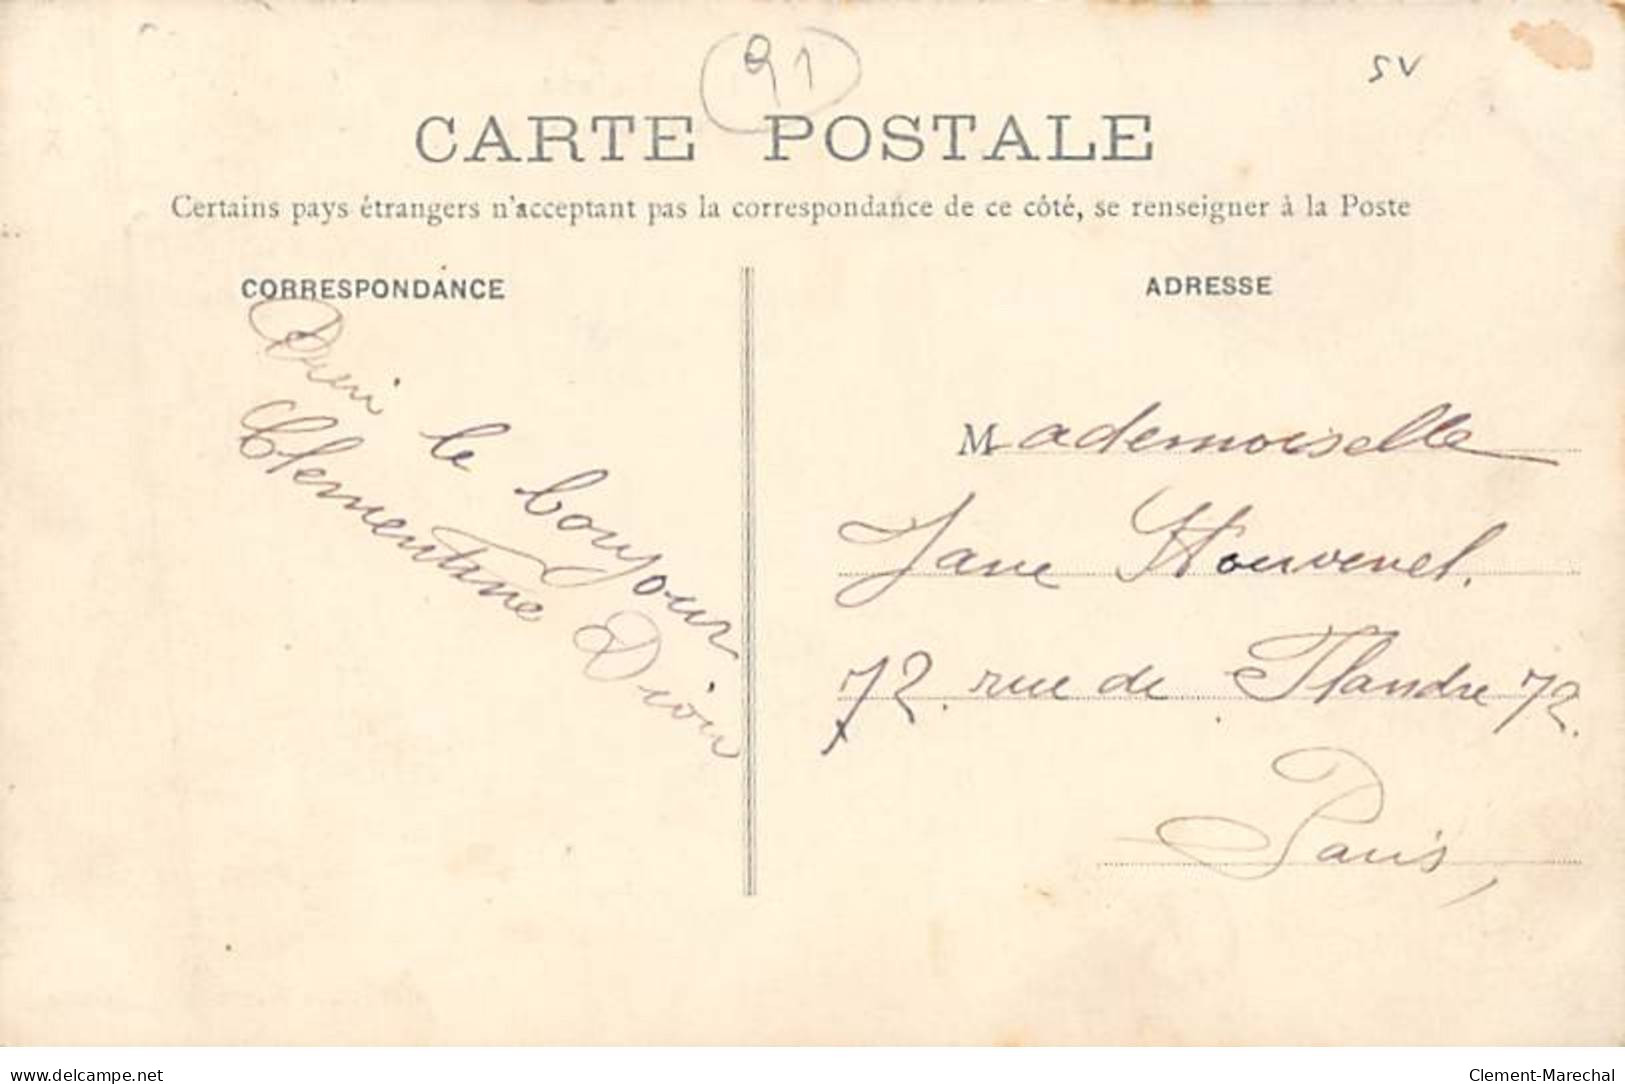 91
SV
CARTE POSTALE
Certains pays étrangers n'acceptant pas la correspondance de ce côté, se renseigner à la Poste
CORRESPONDANCE
le bonjour
Clementine
ADRESSE
Mademoiselle
Jane
72. rue de Flandre 72.
Paris,
www.delcampe.net
Clement-Marechal